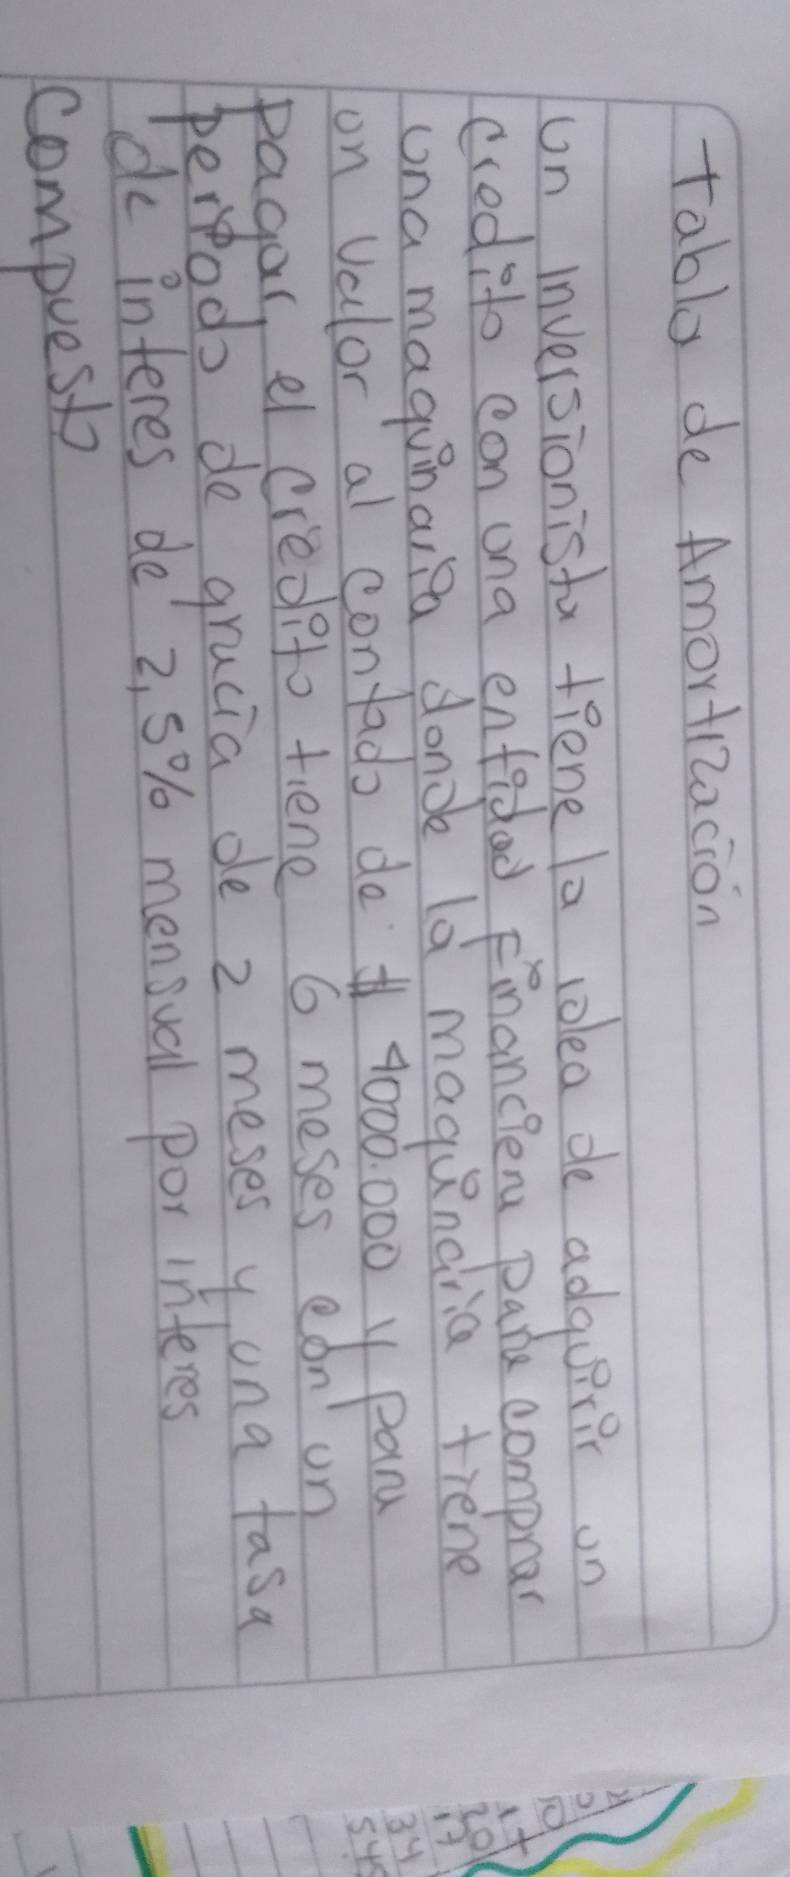 Tabla de Amortización
Un inversionista tiene la idea de adquirir un
credito con una entidad Financiera para comprar
una maquinaria donde la maquinaria tiene
un valor al contado de $ 4000.000 y para
pagar el credito tiene 6 meses con un
periodo de gracia de 2 meses y una tasa
de interes de 2,5% mensual por interes
compuesto
17
34